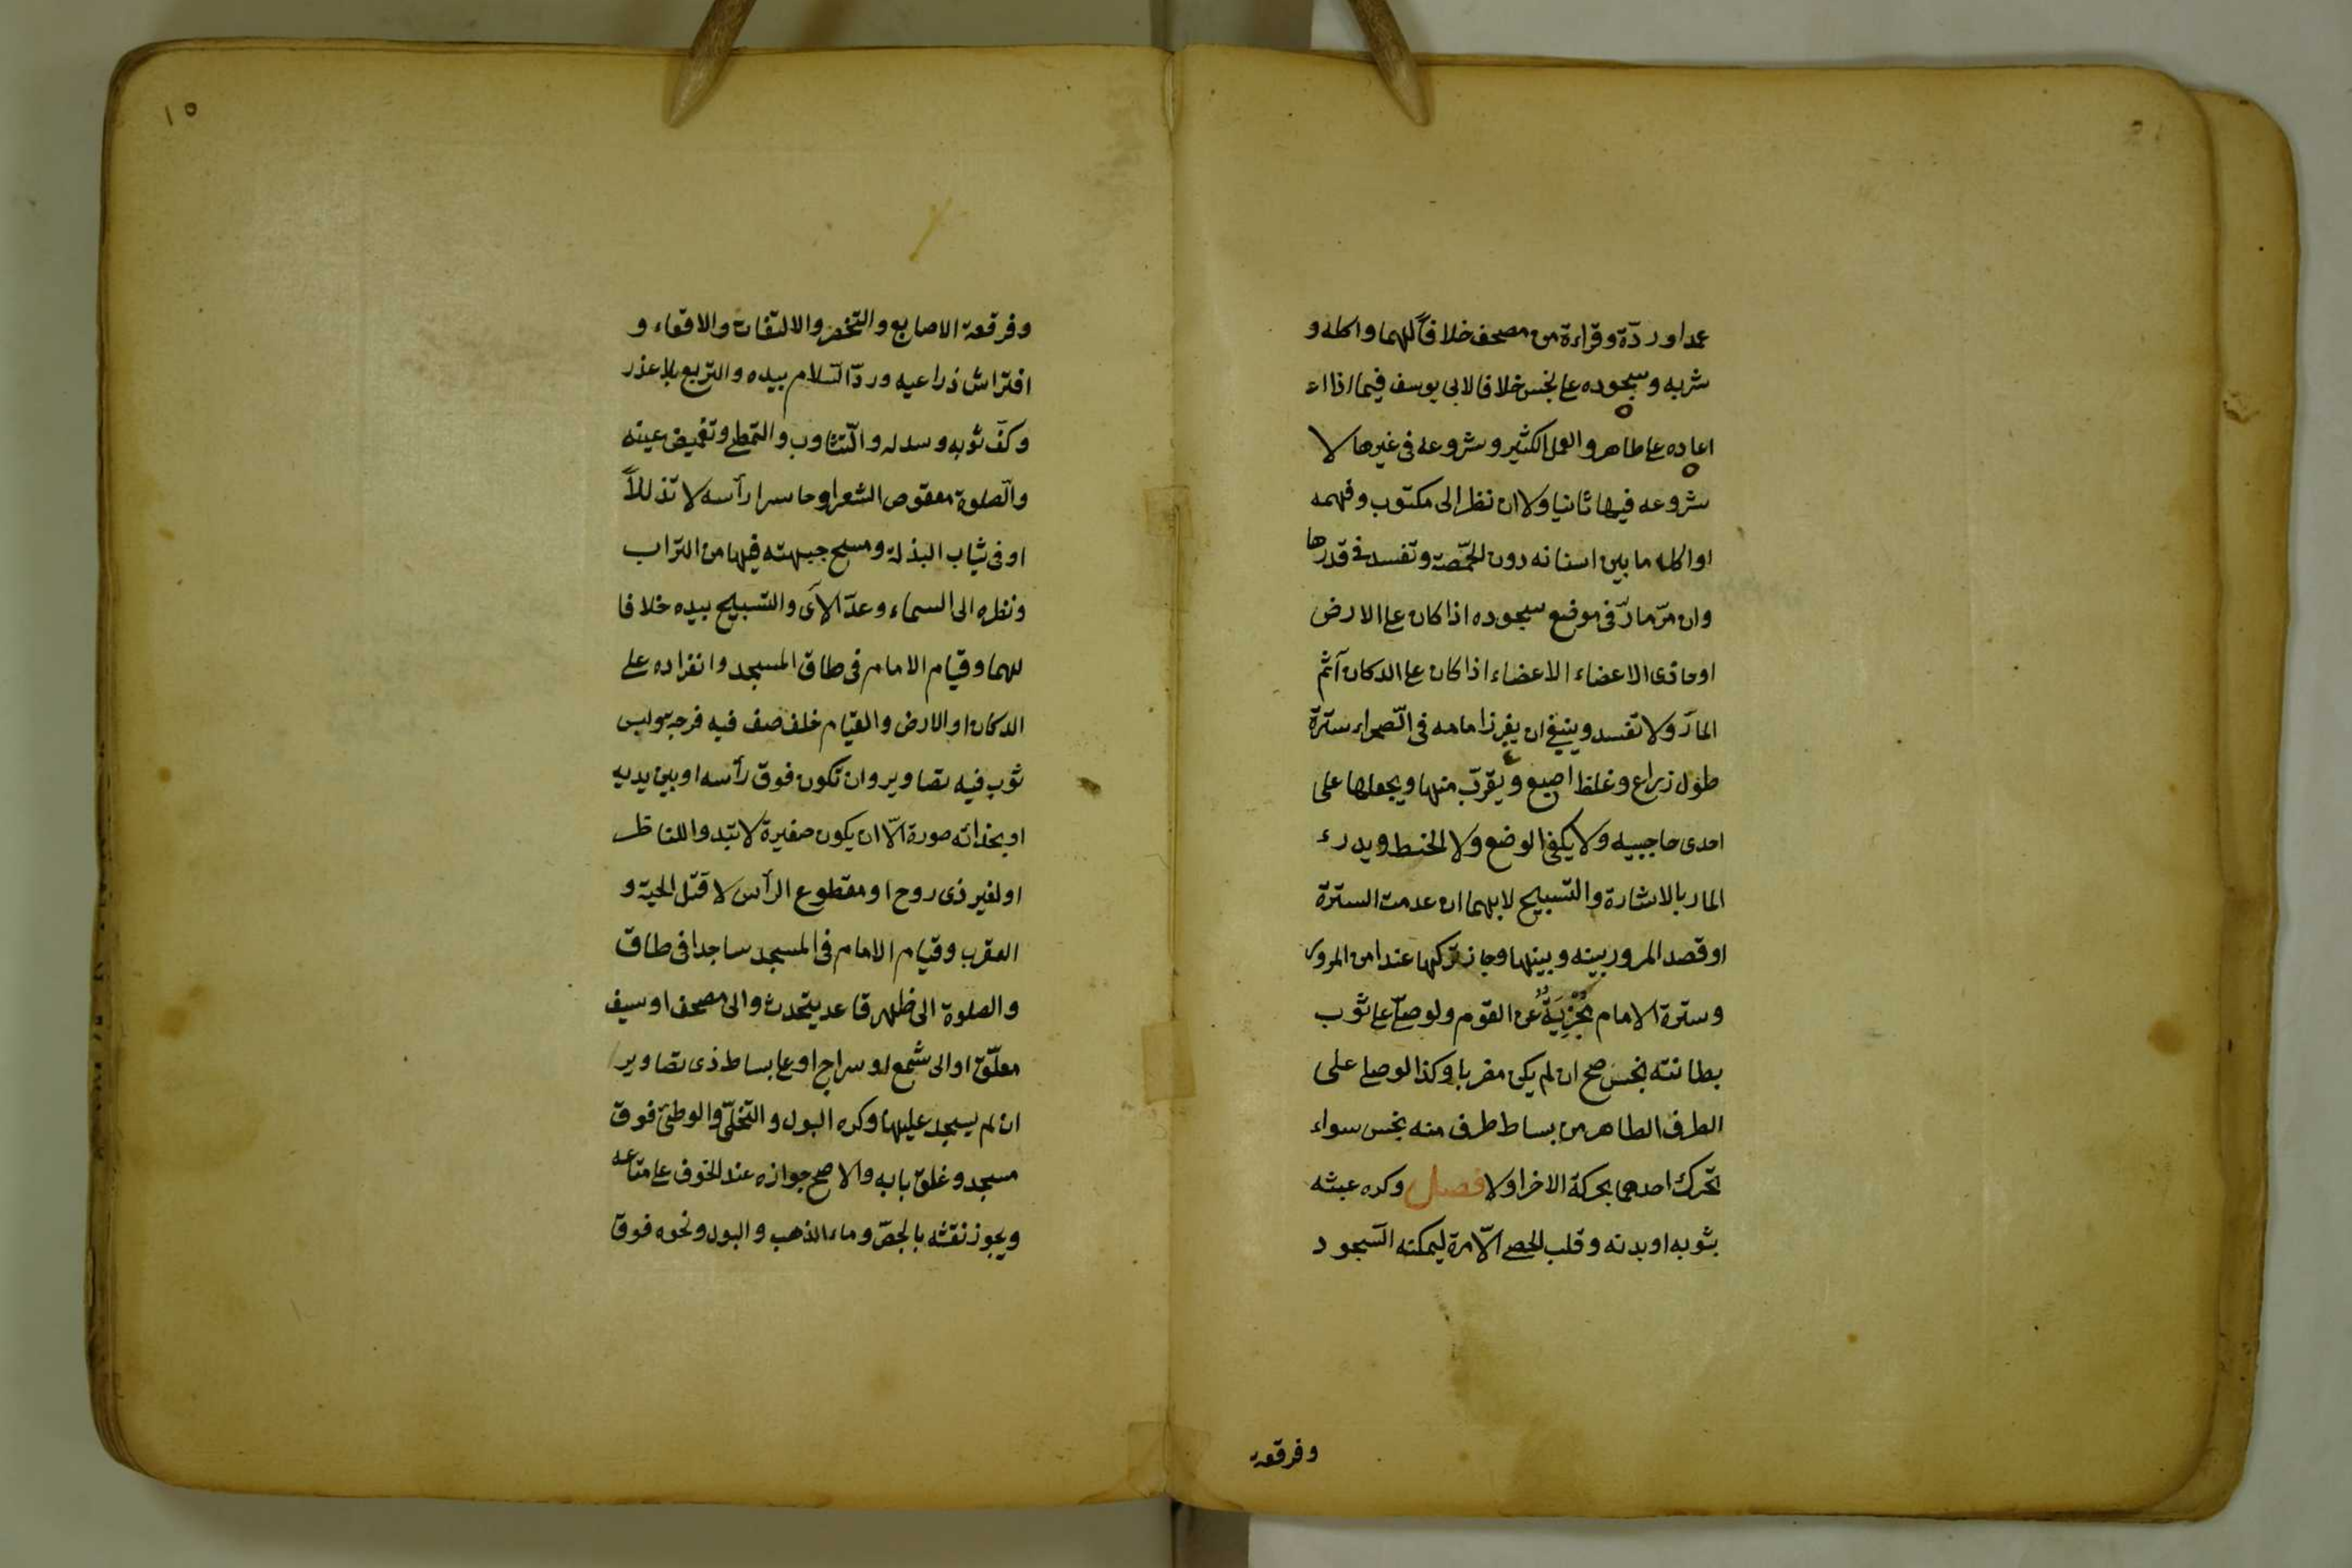 عمدا و ردّه وقراءة من مصحف خلافاً لهما واكله و
شربه وسجوده على نجس خلافا لابى يوسف فيما اذا اع
اعاده على طاهر والعمل الكثير وشروعه فى غيرها لا
شروعه فيها ثانيا ولا ان نظر الى مكتوب وفهمه
او اكله ما بين اسنانه دون الحمّصة وتفسد فى قدرها
وان مرّ مارّ فى موضع سجوده اذا كان على الارض
او حاذى الاعضاء الاعضاء اذا كان على الدكان آثم
المارّ ولا تفسد وينبغى ان يغرز امامه فى الصحراء سترة
طول ذراع وغلظ اصبع ويقرّب منها ويجعلها على
احدى حاجبيه ولا يكفى الوضع ولا الخط ويدرء
المار بالاشارة والتسبيح لا بهما ان عدمت السترة
او قصد المرور بينه وبينها وجاز تركها عند امن المرور
وسترة الامام مُجْزِيَةٌ عن القوم ولو صلّى على ثوب
بطانته نجس صح ان لم يكن مضربا وكذا لو صلى على
الطرف الطاهر من بساط طرف منه نجس سواء
تحرك احدهما بحركة الاخر او لا فصل وكره عبثه
بثوبه او بدنه وقلب الحصى الّا مرة ليمكنه السّجود
وفرقعة
١٥
وفرقعة الاصابع والتخصر والالتفات والاقعاء و
افتراش ذراعيه وردّ السّلام بيده والتربع بلا عذر
وكفّ ثوبه وسدله والتثاوب والتمطى وتغميض عينه
والصّلوة معقوص الشعر او حاسرا رأسه لا تذللاً
او فى ثياب البذلة ومسح جبهته فيها من التراب
ونظره الى السماء وعدّ الآى والتسبيح بيده خلافا
لهما وقيام الامام فى طاق المسجد وانفراده على
الدكان او الارض والقيام خلف صف فيه فرجة ولبس
ثوب فيه تصاوير وان تكون فوق رأسه او بين يديه
او بحذائه صورة الّا ان يكون صغيرة لا تبدوا للناظر
او لغير ذى روح او مقطوع الرأس لا قتل الحية و
العقرب وقيام الامام فى المسجد ساجدا فى طاق
والصلوة الى ظهر قاعد يتحدث والى مصحف او سيف
معلّق او الى شمع او سراج او على بساط ذى تصاوير
ان لم يسجد عليها وكره البول والتخلّى والوطئ فوق
مسجد وغلق بابه والاصح جوازه عند الخوف على متاعه
ويجوز نقشه بالجصّ وماء الذهب والبول ونحوه فوق